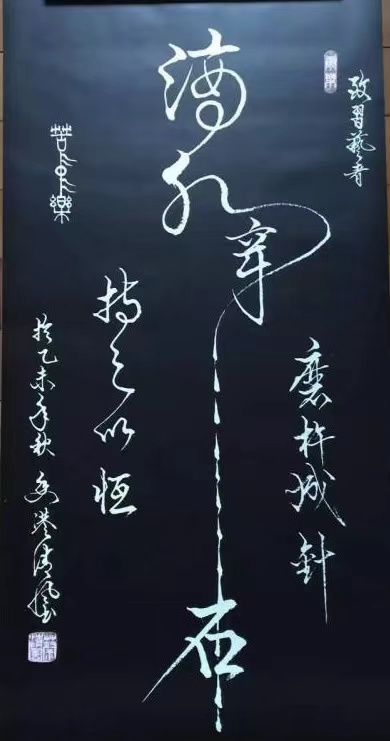 致習藝者
滴水穿石
磨杵成針
持之以恆
於乙未年秋香港清風